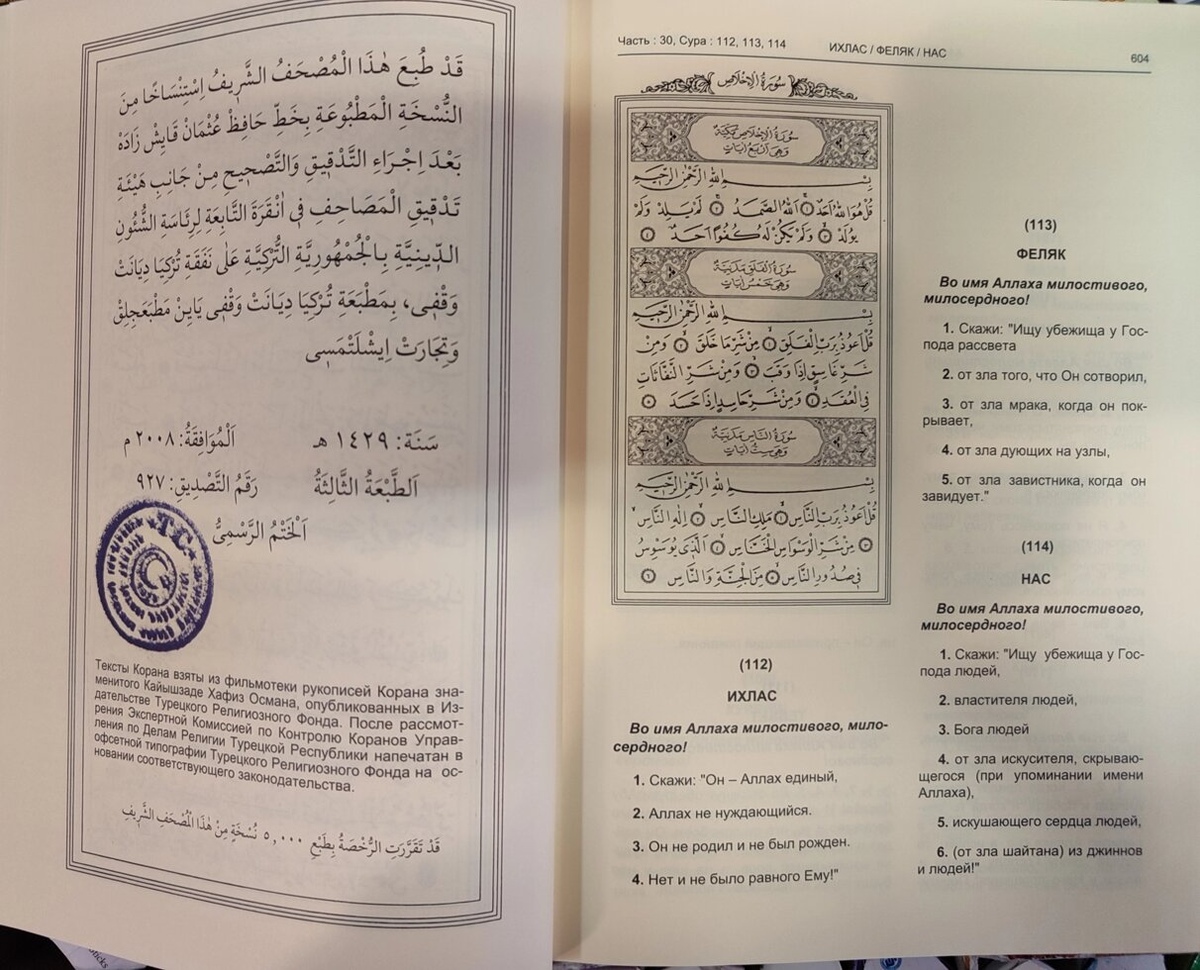 قَدْ طُبِعَ هٰذَا الْمُصْحَفُ الشَّرِيفُ اِسْتِنْسَاخًا مِنَ
النُّسْخَةِ الْمَطْبُوعَةِ بِخَطِّ حَافِظْ عُثْمَانْ قَايِشْ زَادَهْ
بَعْدَ اِجْرَاءِ التَّدْقِيقِ وَالتَّصْحِيحِ مِنْ جَانِبِ هَيْئَةِ
تَدْقِيقِ الْمَصَاحِفِ فِى اَنْقَرَةَ التَّابِعَةِ لِرِئَاسَةِ الشُّئُونِ
الدِّينِيَّةِ بِالْجُمْهُورِيَّةِ التُّرْكِيَّةِ عَلٰى نَفَقَةِ تُرْكِيَا دِيَانَتْ
وَقْفِى، بِمَطْبَعَةِ تُرْكِيَا دِيَانَتْ وَقْفِى يَايِنْ مَطْبَعَجِلِقْ
وَتِجَارَتْ اِيشْلَتْمَسِى
سَنَة: ١٤٢٩ هـ اَلْمُوَافِقَةُ: ٢٠٠٨ م
اَلطَّبْعَةُ الثَّالِثَةُ رَقَمُ التَّصْدِيقِ: ٩٢٧
اَلْخَتْمُ الرَّسْمِىُّ
T.C.
Тексты Корана взяты из фильмотеки рукописей Корана зна-
менитого Кайышзаде Хафиз Османа, опубликованных в Из-
дательстве Турецкого Религиозного Фонда. После рассмот-
рения Экспертной Комиссией по Контролю Коранов Управ-
ления по Делам Религии Турецкой Республики напечатан в
офсетной типографии Турецкого Религиозного Фонда на ос-
новании соответствующего законодательства.
قَدْ تَقَرَّرَتِ الرُّخْصَةُ بِطَبْعِ ٥,٠٠٠ نُسْخَةٍ مِنْ هٰذَا الْمُصْحَفِ الشَّرِيفِ
Часть : 30, Сура : 112, 113, 114 ИХЛАС / ФЕЛЯК / НАС 604
سُورَةُ الْاِخْلَاصِ
سُورَةُ الْاِخْلَاصِ مَكِّيَّةٌ
وَهِىَ اَرْبَعُ اٰيَاتٍ
بِسْمِ اللهِ الرَّحْمٰنِ الرَّحِيمِ
قُلْ هُوَ اللهُ اَحَدٌ ١ اَللهُ الصَّمَدُ ٢ لَمْ يَلِدْ وَلَمْ
يُولَدْ ٣ وَلَمْ يَكُنْ لَهُ كُفُوًا اَحَدٌ ٤
سُورَةُ الْفَلَقِ مَدَنِيَّةٌ
وَهِىَ خَمْسُ اٰيَاتٍ
بِسْمِ اللهِ الرَّحْمٰنِ الرَّحِيمِ
قُلْ اَعُوذُ بِرَبِّ الْفَلَقِ ١ مِنْ شَرِّ مَا خَلَقَ ٢ وَمِنْ
شَرِّ غَاسِقٍ اِذَا وَقَبَ ٣ وَمِنْ شَرِّ النَّفَّاثَاتِ
فِى الْعُقَدِ ٤ وَمِنْ شَرِّ حَاسِدٍ اِذَا حَسَدَ ٥
سُورَةُ النَّاسِ مَدَنِيَّةٌ
وَهِىَ سِتُّ اٰيَاتٍ
بِسْمِ اللهِ الرَّحْمٰنِ الرَّحِيمِ
قُلْ اَعُوذُ بِرَبِّ النَّاسِ ١ مَلِكِ النَّاسِ ٢ اِلٰهِ النَّاسِ
٣ مِنْ شَرِّ الْوَسْوَاسِ الْخَنَّاسِ ٤ اَلَّذِى يُوَسْوِسُ
فِى صُدُورِ النَّاسِ ٥ مِنَ الْجِنَّةِ وَالنَّاسِ ٦
(112)
ИХЛАС
Во имя Аллаха милостивого, мило-
сердного!
1. Скажи: "Он – Аллах единый,
2. Аллах не нуждающийся.
3. Он не родил и не был рожден.
4. Нет и не было равного Ему!"
(113)
ФЕЛЯК
Во имя Аллаха милостивого,
милосердного!
1. Скажи: "Ищу убежища у Гос-
пода рассвета
2. от зла того, что Он сотворил,
3. от зла мрака, когда он пок-
рывает,
4. от зла дующих на узлы,
5. от зла завистника, когда он
завидует."
(114)
НАС
Во имя Аллаха милостивого,
милосердного!
1. Скажи: "Ищу убежища у Гос-
пода людей,
2. властителя людей,
3. Бога людей
4. от зла искусителя, скрываю-
щегося (при упоминании имени
Аллаха),
5. искушающего сердца людей,
6. (от зла шайтана) из джиннов
и людей!"